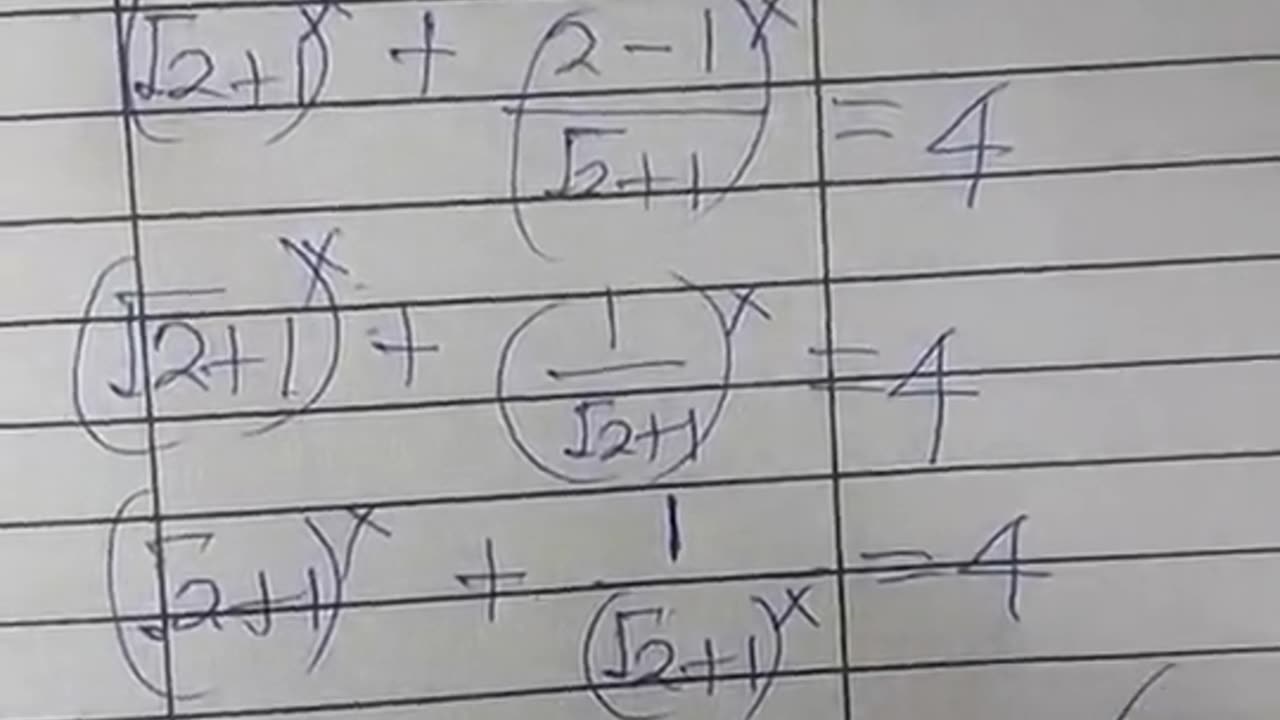 (√2+1)^x + ((2-1)/(√2+1))^x = 4
(√2+1)^x + (1/(√2+1))^x = 4
(√2+1)^x + 1/(√2+1)^x = 4